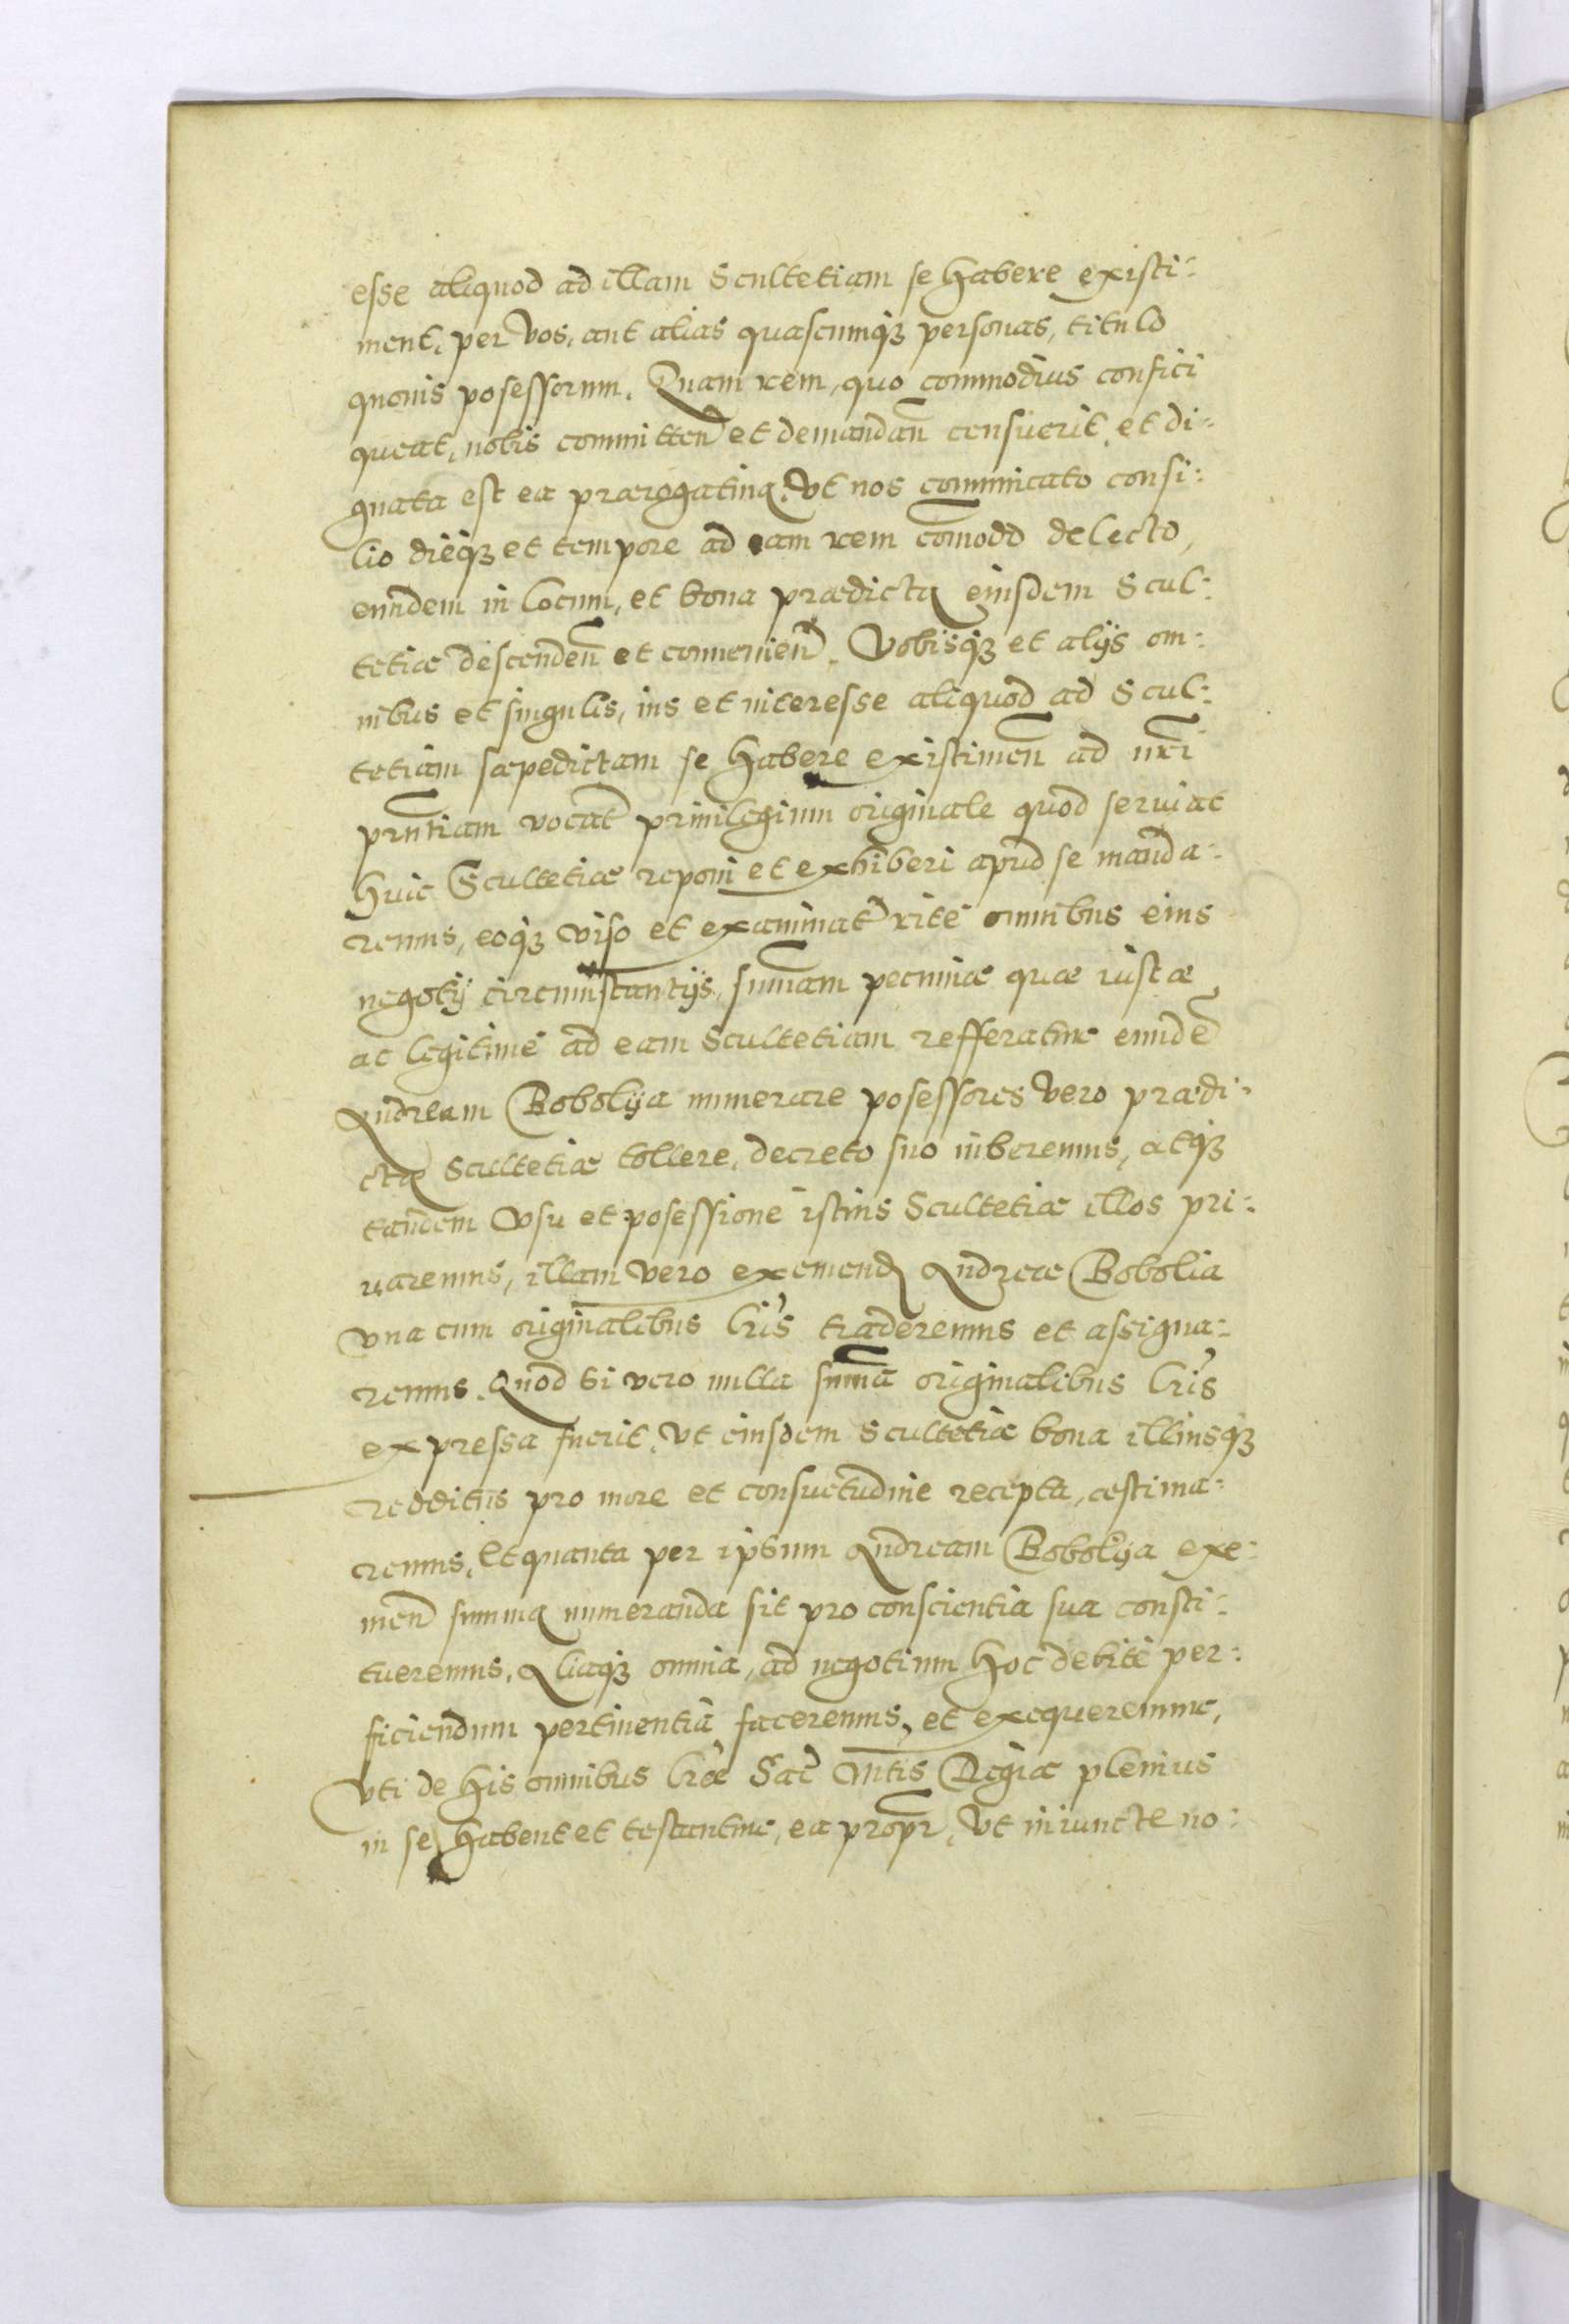 esse aliquod ad illam Scultetiam se habere existi:
ment, per vos, aut alias quascumq3 personas, titulo
quouis posessorum. Quam rem, quo commodius confici
queat, nobis committen̄ et demandan̄ censuerit, et di:
gnata est ea prærogatiua, vt nos communicato consi:
lio dieq3 et tempore ad eam rem com̄odo delecto,
eundem in locum, et bona prædicta eiusdem Scul:
tetiæ descenden̄ et conuenien̄. Vobisq3 et alijs om:
nibus et singulis, ius et interesse aliquod ad Scul:
tetiam sæpedictam se habere existimen̄ ad nr̄i
prn̄tiam vocat̄ priuilegium originale quod seruiat
huic Scultetiæ reponi et exhiberi apud se manda:
remus, eoq3 viso et examinat̄ rite omnibus eius
negotij circumstantijs, sum̄am pecuniæ quæ iustæ
ac legitime ad eam Scultetiam refferatur eundē
Andream Bobolija numerare posessores vero prædi:
ctæ Scultetiæ tollere, decreto suo iuberemus, atq3
tandem vsu et posessione istius Scultetiæ illos pri:
uaremus, illam vero exemend Andreæ Bobolia
vna cum originalibus lr̄is traderemus et assigna:
remus. Quod si vero nulla sum̄a originalibus lr̄is
expressa fuerit, vt eiusdem Scultetiæ bona illiusq3
redditus pro more et consuetudine recepta, æstima:
remus, Et quanta per ipsum Andream Bobolija exe:
men̄ summa numeranda sit pro conscientia sua consti:
tueremus. Aliaq3 omnia, ad negotium hoc debite per:
ficiendum pertinentia faceremus, et exequeremur,
vti de his omnibus lr̄æ Sac̄ Mt̄is Regiæ plenius
in se habent et testantur, ea propr̄, vt iniuncte no: